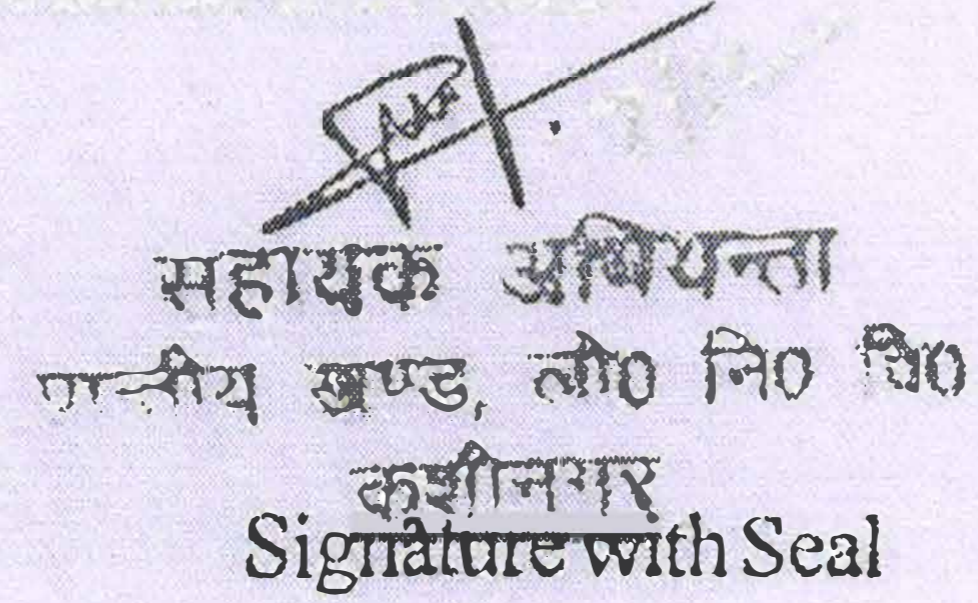 सहायक अभियन्ता
प्रान्तीय खण्ड, लो० नि० वि०
कुशीनगर
Signature with Seal